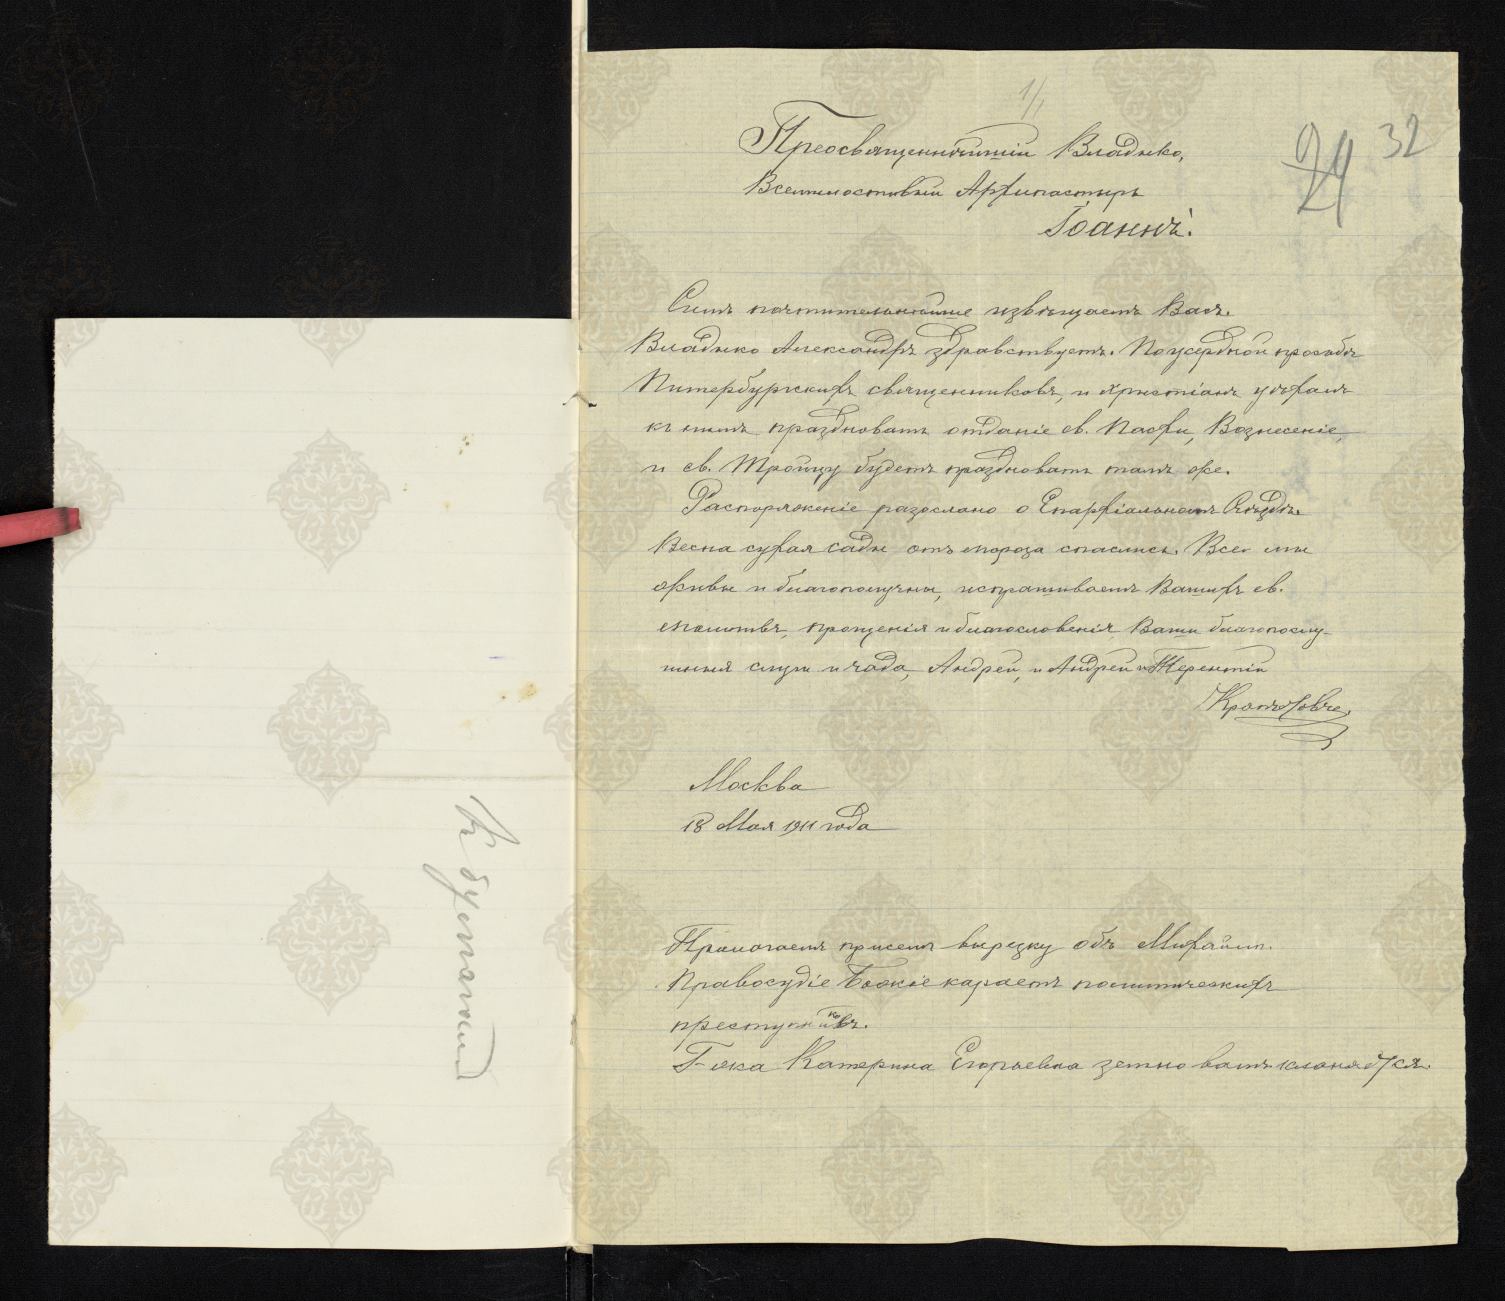 1/1
32
24
Преосвященнѣйшій Владыко,
Всемилостивый Архипастырь
Іоаннъ!
Симъ почтительнѣйше извѣщаемъ Васъ.
Владыко Александръ здравствуетъ. По усердной просьбѣ
Питербургскихъ священниковъ, и христіанъ уѣхалъ
къ нимъ праздновать отданіе св. Пасхи, Вознесеніе,
и св. Троицу будетъ праздновать тамъ же.
Распоряженіе разослано о Епархіальномъ Съѣздѣ.
Весна сухая сады отъ мороза спаслись. Все мы
живы и благополучны, испрашиваемъ Вашихъ св.
молитвъ, прощенія и благословенія Ваши благопослу-
шныя слуги и чада, Андрей, и Андрей и Терентій
Москва
18 Мая 1911 года
Прилагаемъ присемъ вырезку объ Михаилѣ.
Правосудіе Божіе караетъ политическихъ
преступниковъ.
Г-жа Катерина Егорьевна земно вамъ кланяется.
К бумагам